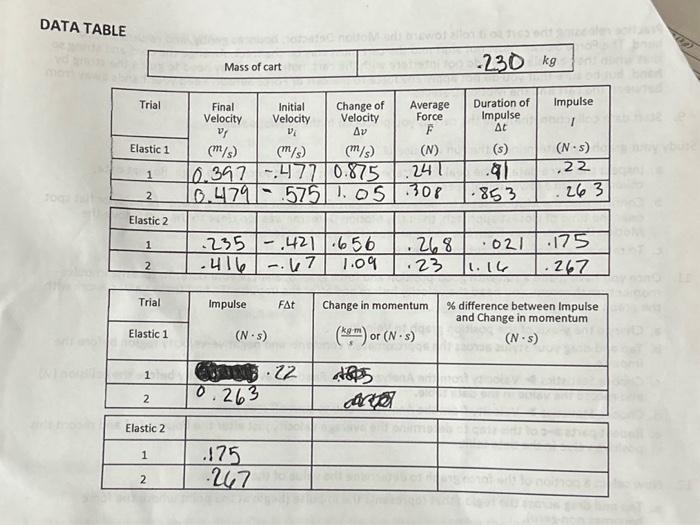 DATA TABLE
Mass of cart .230 kg
Trial Final Velocity Initial Velocity Change of Velocity Average Force Duration of Impulse Impulse
v_f v_i Δv F̄ Δt I
Elastic 1 (m/s) (m/s) (m/s) (N) (s) (N·s)
1 0.397 -.477 0.875 .241 .91 .22
2 0.479 -.575 1.05 .308 .853 .263
Elastic 2
1 .235 -.421 .656 .268 .021 .175
2 .416 -.67 1.09 .23 1.16 .267
Trial Impulse FΔt Change in momentum % difference between Impulse and Change in momentum
Elastic 1 (N·s) (kg·m/s) or (N·s) (N·s)
1 .22
2 0.263
Elastic 2
1 .175
2 .267